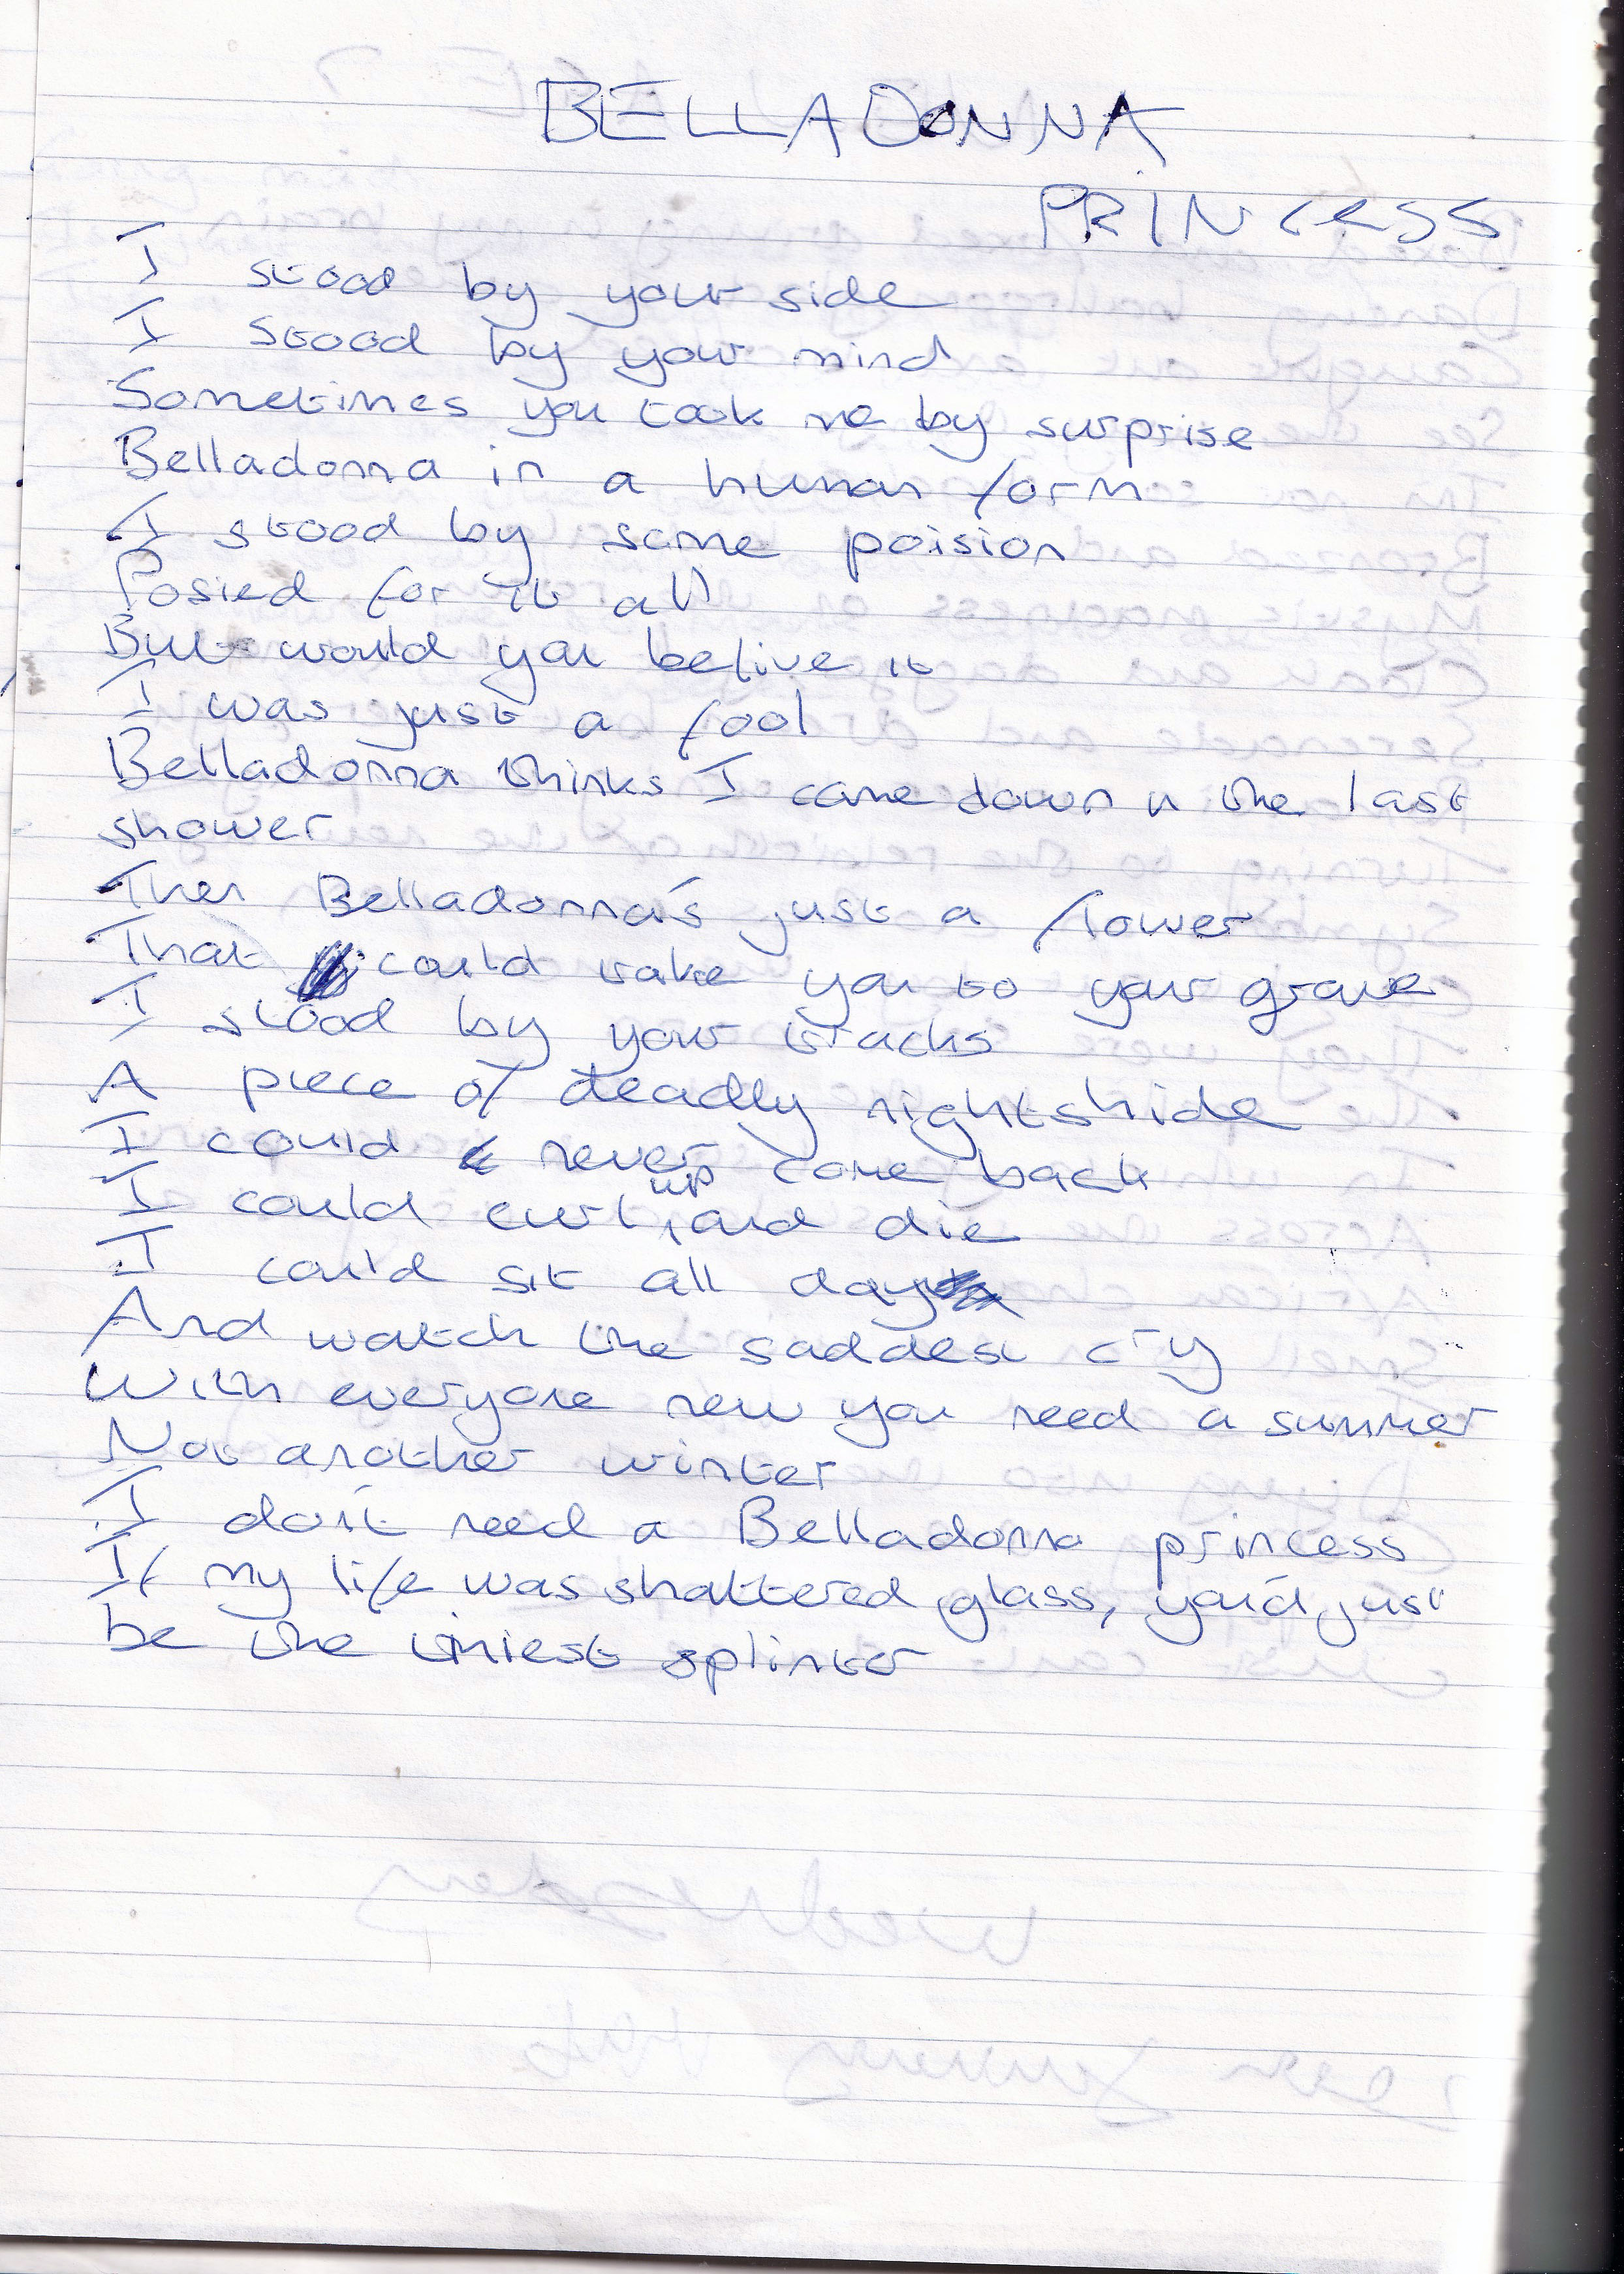 BELLADONNA
PRINCESS
I stood by your side
I stood by your mind
Sometimes you took me by surprise
Belladonna in a human form
I stood by some poision
Posied for it all
But would you belive it
I was just a fool
Belladonna thinks I came down in the last
shower
Then Belladonna's just a flower
That could take you to your grave
I stood by your tracks
A piece of deadly nightshide
I could never come back
I could curl up and die
I could sit all day
And watch the saddest cry
With everyone new you need a summer
Not another winter
I don't need a Belladonna princess
If my life was shattered glass, you'd just
be the tiniest splinter